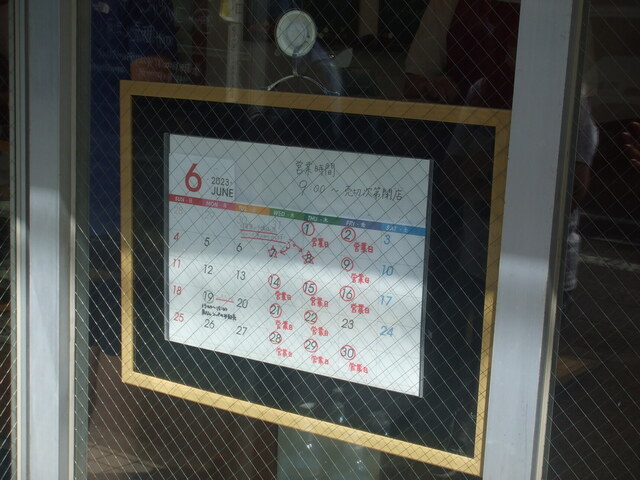 6 2023. JUNE
営業時間
9:00〜売切次第閉店
SUN MON TUE WED THU FRI SAT
1 2 3
営業日 営業日
4 5 6
9 10
営業日
11 12 13 14 15 16 17
営業日 営業日 営業日
18 19 20 21 22 23 24
営業日 営業日
25 26 27 28 29 30
営業日 営業日 営業日